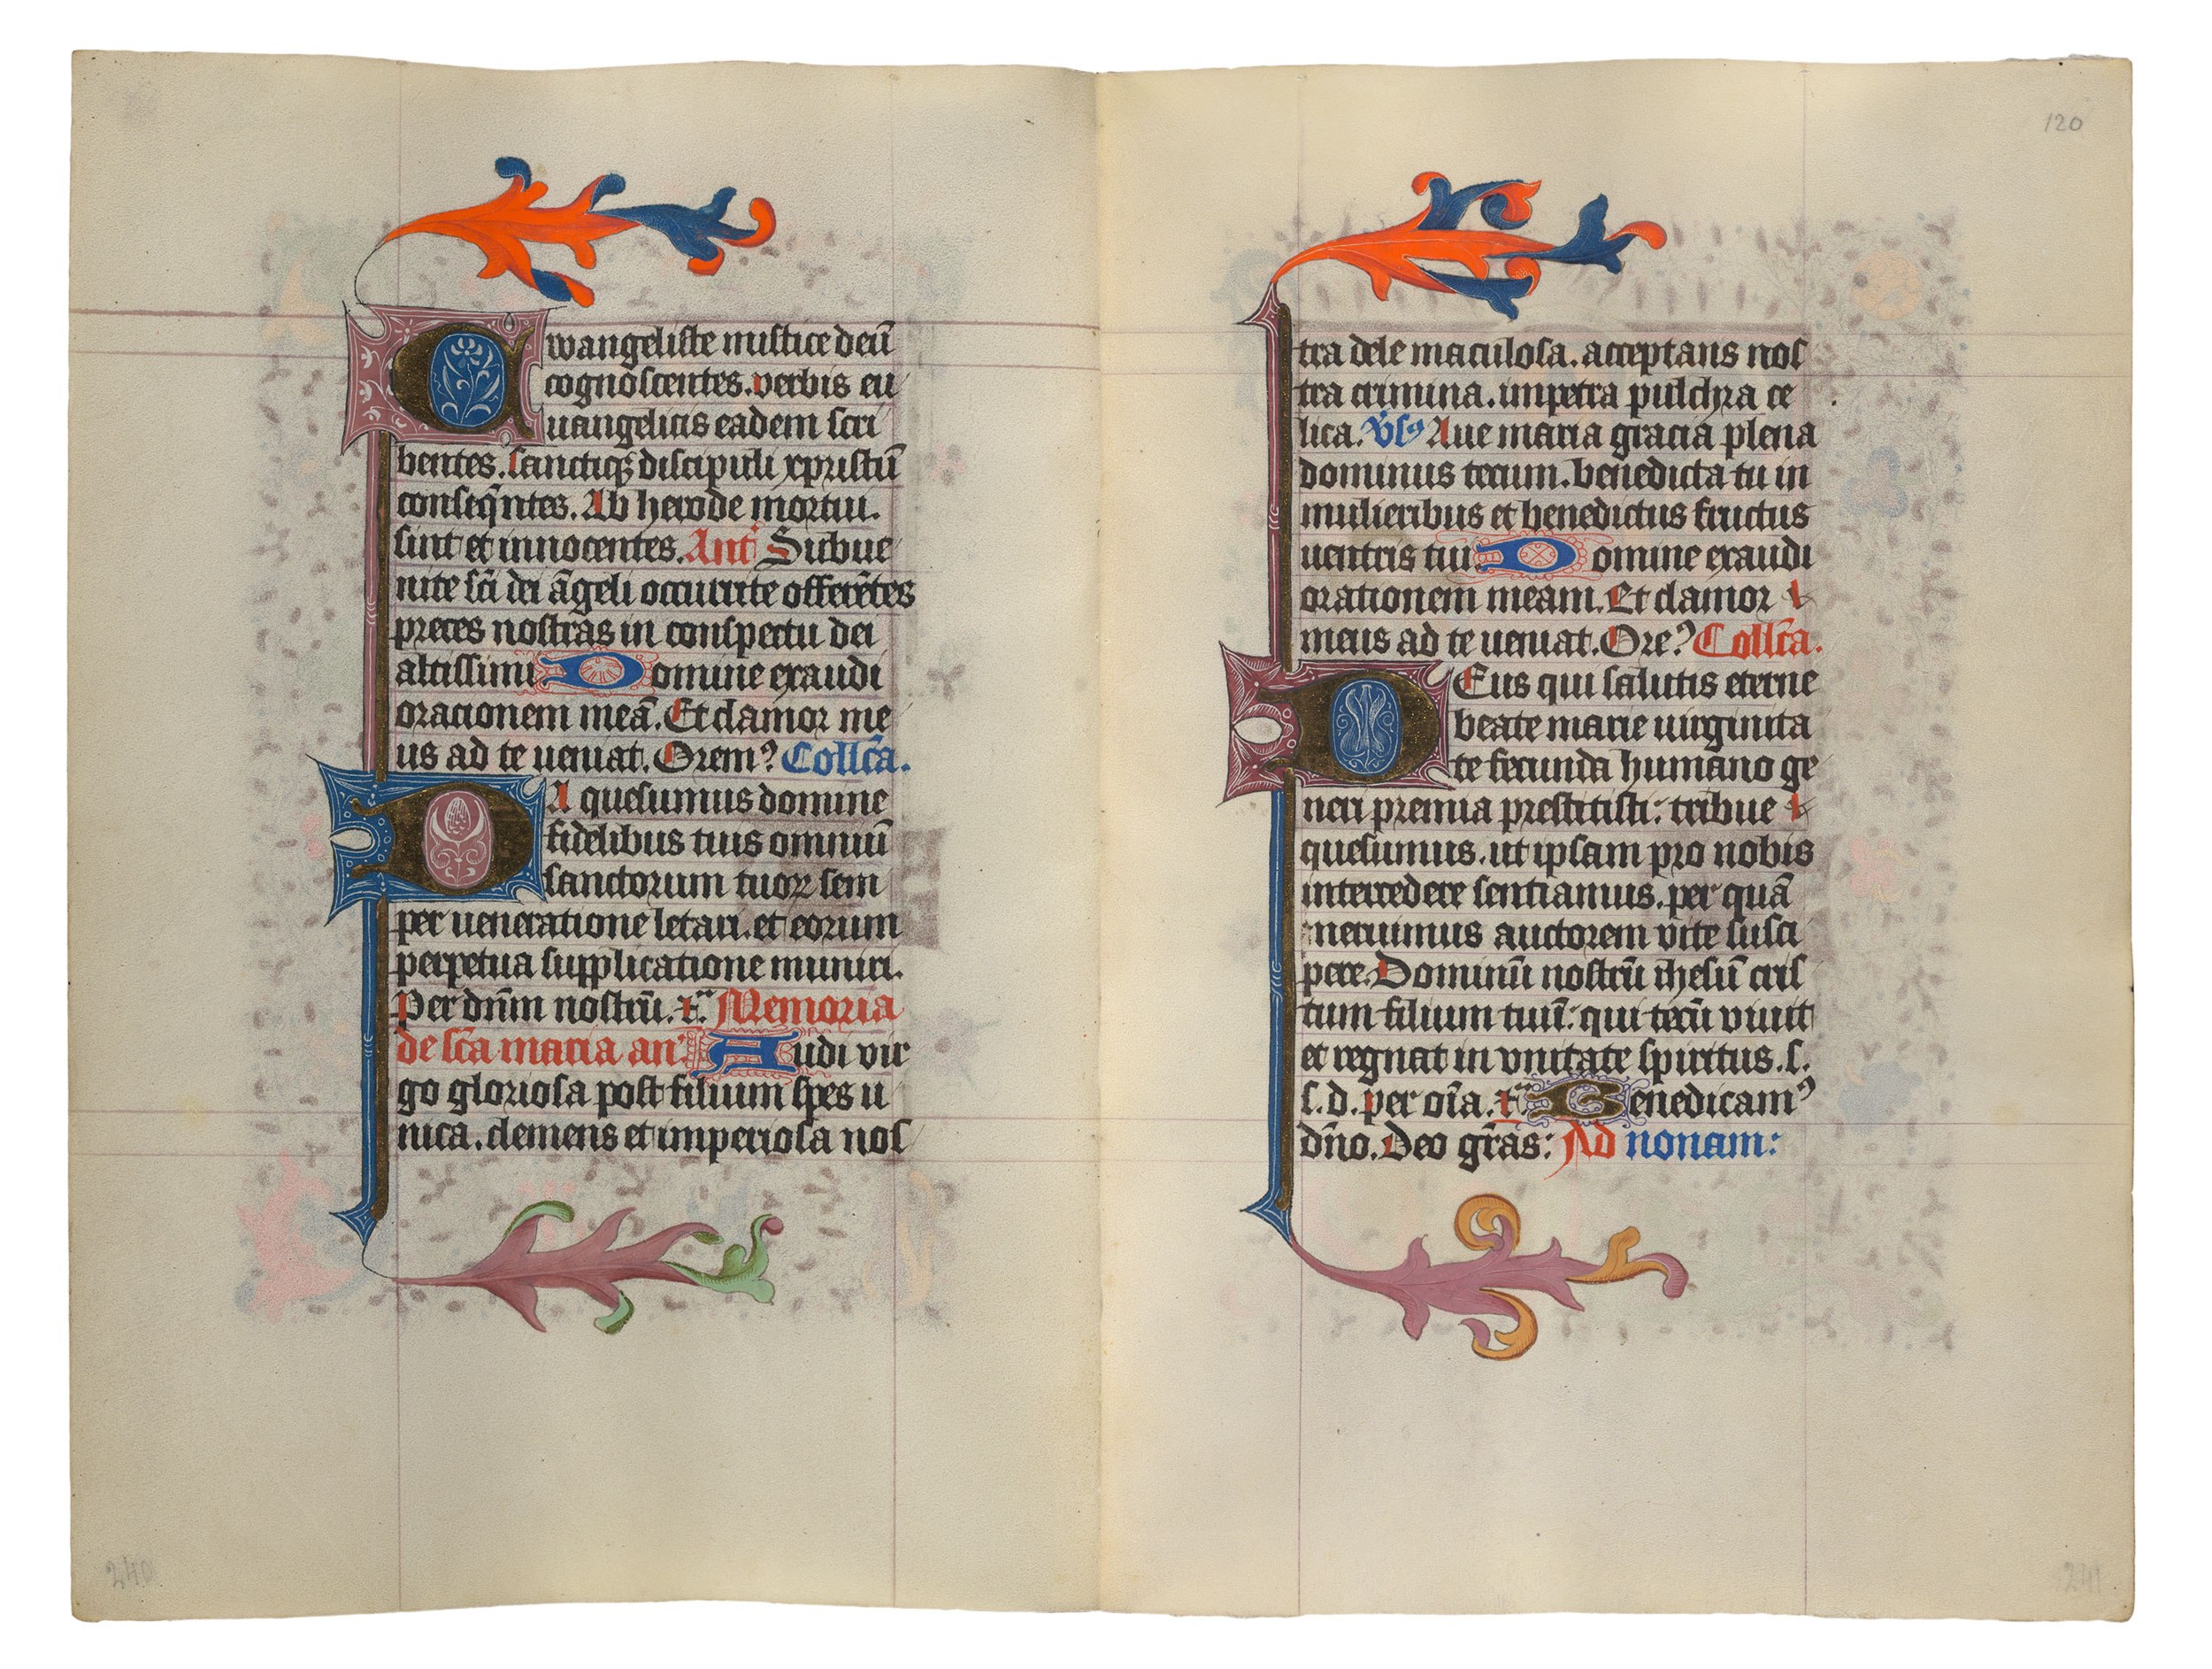 Ewangeliste mistice deū
cognoscentes. verbis eu
uangelicis eadem scri
bentes. sanctiqȝ discipuli xpristū
conseq̄ntes. Ab herode mortui.
sint et innocentes. Ant̄ Subue
nite sc̄i dei āgeli occurrite offerētes
preces nostras in conspectu dei
altissimi. Domine exaudi
orationem meā. Et clamor me
us ad te ueniat. Orem⁹ Collc̄a.
DA quesumus domine
fidelibus tuis omniū
sanctorum tuoꝝ sem
per ueneratione letari. et eorum
perpetua supplicatione muniri.
Per dn̄m nostrū. Memoria
de sc̄a maria an̄. Audi vir
go gloriosa post filium spes u
nica. clemens et imperiosa nos
120
tra dele maculosa. acceptans nos
tra crimina. impetra pulchra ce
lica. Vs⁹ Aue maria gracia plena
dominus tecum. benedicta tu in
mulieribus et benedictus fructus
uentris tui. Domine exaudi
orationem meam. Et clamor
meus ad te ueniat. Ore⁹ Collc̄a.
DEus qui salutis eterne
beate marie uirginita
te fecunda humano ge
neri premia prestitisti: tribue
quesumus. ut ipsam pro nobis
intercedere sentiamus. per quā
meruimus auctorem vite susci
pere. Dominū nostrū ih̄esū cris
tum filium tuū: qui tecū viuit
et regnat in vnitate spiritus. s.
s. d. per oīa. Benedicam⁹
dn̄o. Deo gr̄as: Ad nonam:
240
241